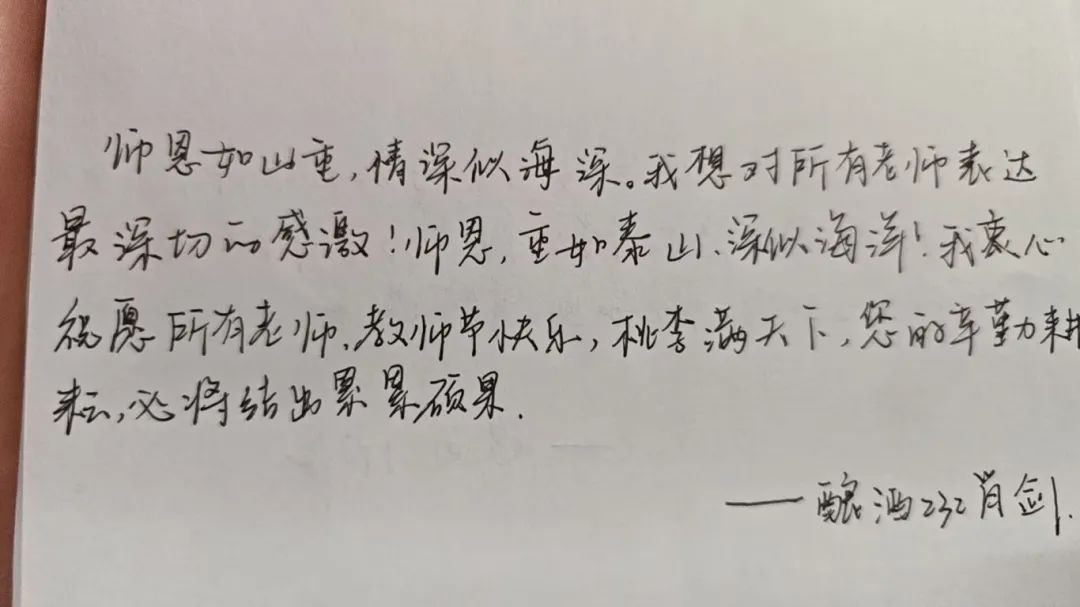 师恩如山重,情深似海深。我想对所有老师表达
最深切的感激!师恩,重如泰山、深似海洋!我衷心
祝愿所有老师,教师节快乐,桃李满天下,您的辛勤耕
耘,必将结出累累硕果.
——酿酒232肖剑.